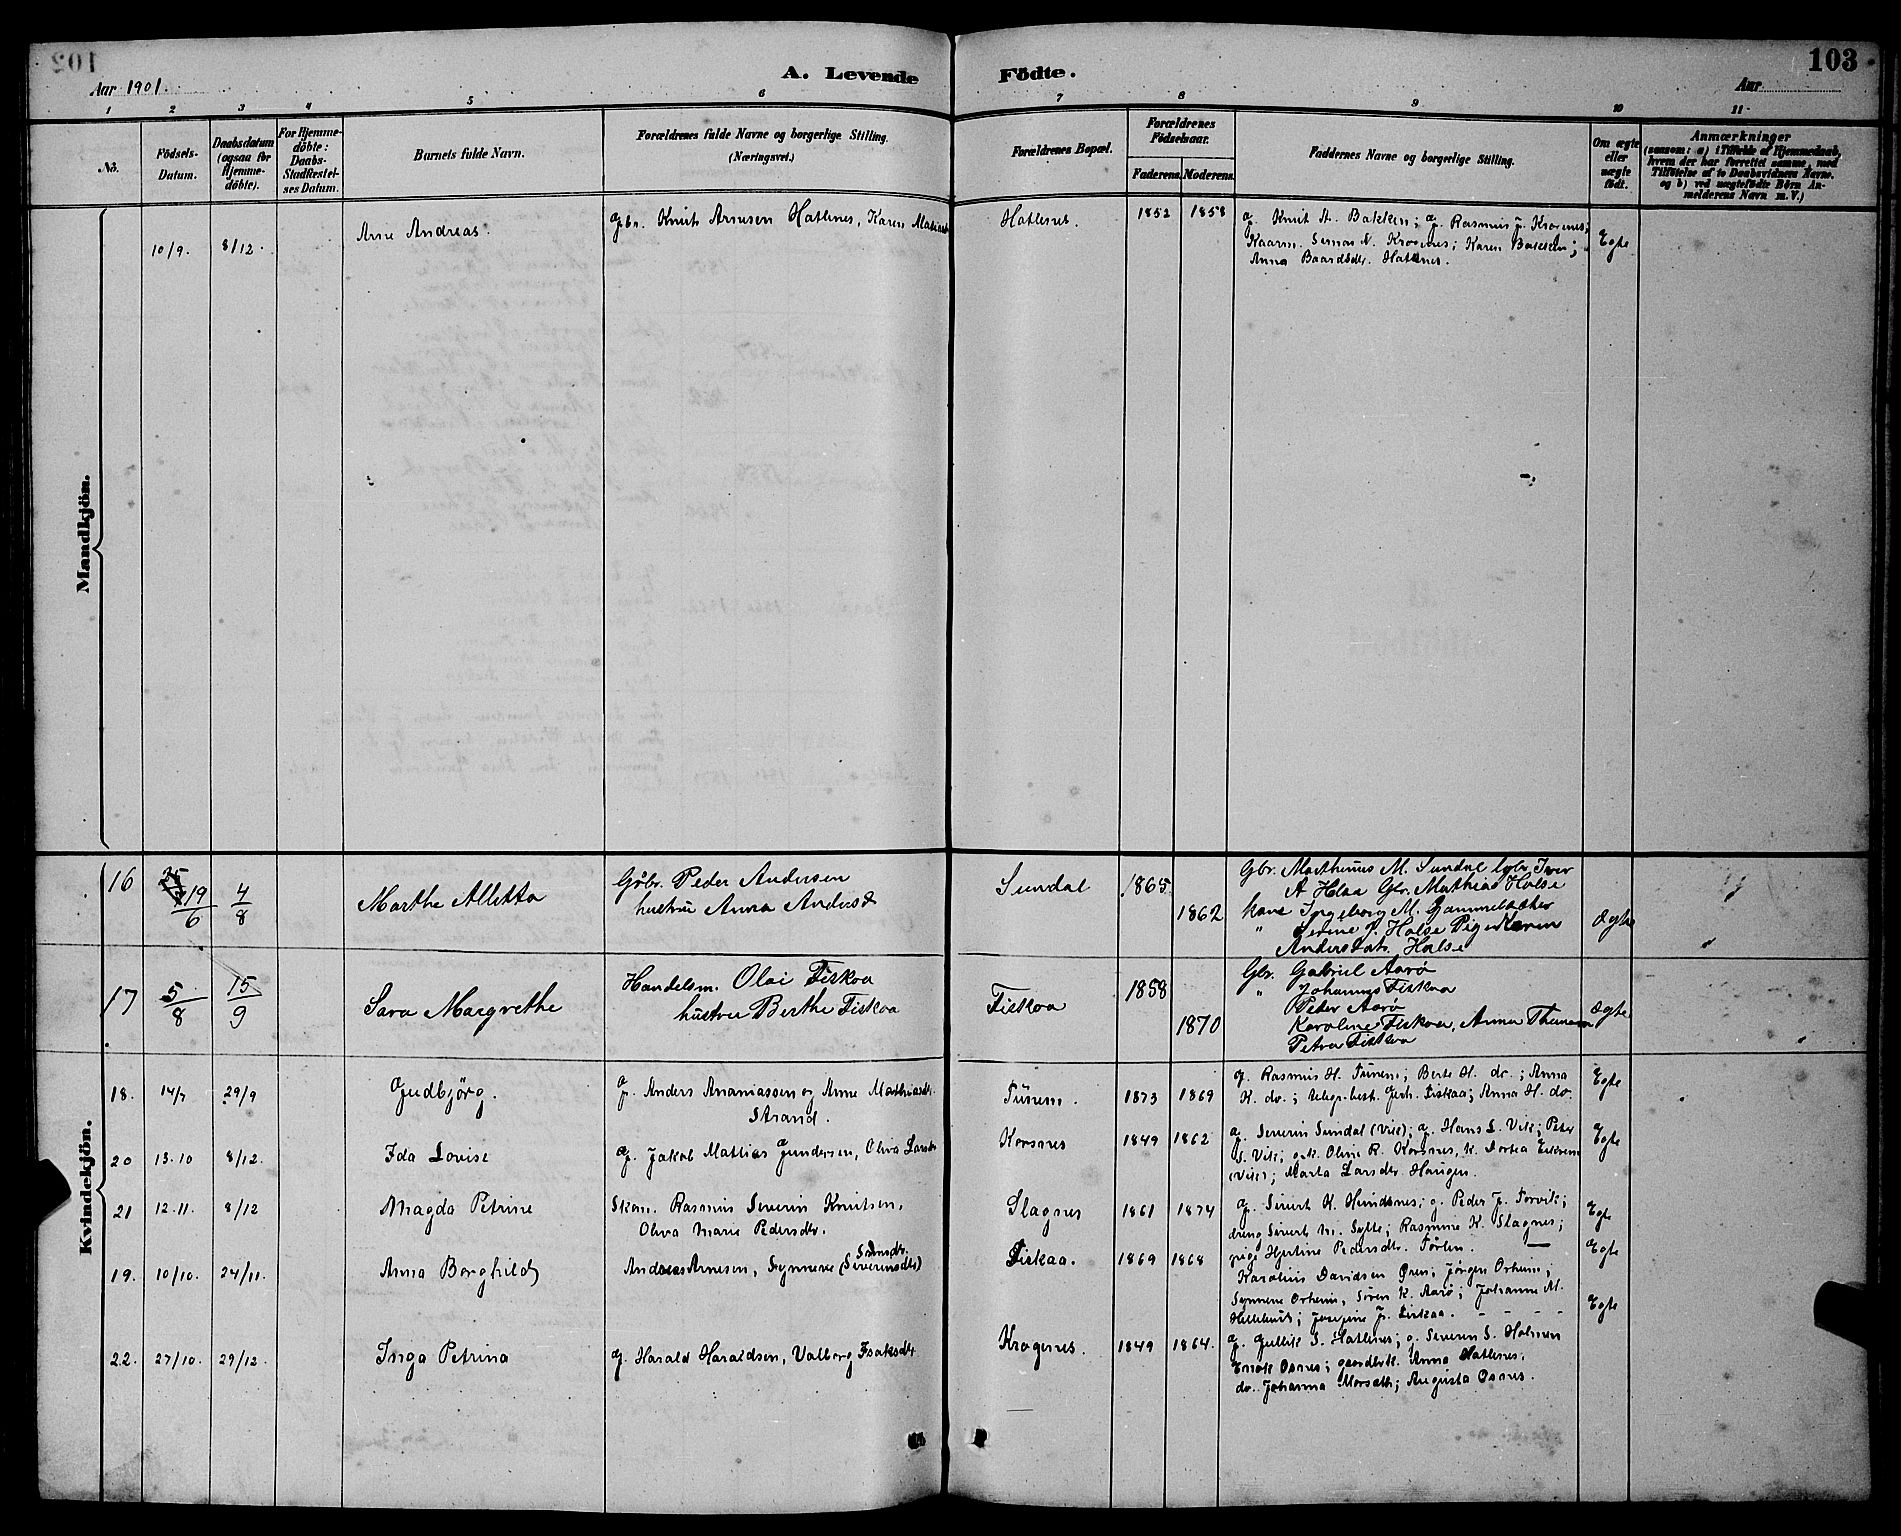 103
Aar 1901.
A. Levende Födte.
Aar
1 2 3 4 5 6 7 8 9 10 11
No.
Födsels-Datum.
Daabsdatum (ogsaa for Hjemme-döbte).
For Hjemme-döbte: Daabs-Stadfæstel-ses Datum.
Barnets fulde Navn.
Forældrenes fulde Navne og borgerlige Stilling. (Næringsvei.)
Forældrenes Bopæl.
Forældrenes Födselsaar.
Faderens. Moderens.
Faddernes Navne og borgerlige Stilling.
Om ægte eller uægte födt.
Anmærkninger
(saasom: a) i Tilfælde af Hjemmedaab, hvem der har forrettet samme, med Tilföielse af to Daabsvidners Navne. og b) ved uægtefödte Börn Anmelderens Navn m. V.)
Mandkjön.
10/9. 8/12. Arne Andreas. Gbr. Knut Arnesen Hatlenes, Karen Matiasd Hatlenes. 1852 1858
g. Knut A. Bakken; g. Rasmus J. Krogenes;
Kaarm. Simon N. Krogenes; Karen Bakken; Egte
Anna Baardsdtr. Hatlenes.
Kvindekjön.
16 19/6 4/8 Marthe Alletta Gbr. Peder Andersen
hustru Anna Andersd Sundal 1865 1862
Gbr. Mathias M. Sundal Gbr Iver
A Hlaa Gbr. Mathias Halse
kone Ingeborg M. Gammelsæter
" Serine P. Halse Pige Karen Ægte
Andersdatr. Halse
17 5/8 15/9 Sara Margrethe Handelsm. Olai Fiskaa
hustru Berthe Fiskaa Fiskaa 1858 1870
Gbr. Gabriel Aarø
" Johannes Fiskaa
Peter Aarø
Karoline Fiskaa, Anna Thunem Ægte
Petra Fiskaa
18. 14/7 29/9 Gudbjörg. g. Anders Ananiassen og Anne Mathiasdtr.
Strand. Tunem. 1873 1869
g. Rasmus H. Tunem; Berte H. do.; Anna Egte
K. do.; telegr.best. Gert. Fiskaa; Anna H. do.
20 13.10 8/12. Ida Lovise g. Jakob Matias Gundersen, Oliva Larsdtr Korsnes 1849 1862
g. Severin Sundal (Vik); g. Hans S. Vik; Peter Egte
S. Vik; g.k. Oline R. Korsnes, k. Dortea Eikrem
(Vik); Marta Larsdtr. Haugen.
21 12.11. 8/12 Magda Petrine Skom. Rasmus Severin Knutsen,
Oliva Marie Pedersdtr. Slagnes 1861 1874
g. Sivert K. Hundsnes; g. Peder J. Torvik;
dreng Sivert M. Sylte; Rasmine K. Slagnes; Egte
pige Hjertine Pedersdtr. Torlen.
19. 10/10. 24/11. Anna Borghild Andreas Arnesen, Synneve (Severinsdtr) Fiskaa. 1869 1868 Egte
Karolius Davidsen Ören; Jörgen Orheim;
Synneve Orheim, Sören K. Aarø; Johanne M.
Hellehus; Josefine J. Fiskaa. Egte
22. 27/10. 29/12. Inga Petrina g. Harald Haraldsen, Valborg Isaksdtr Krogenes. 1849 1864.
g. Gullik S. Hatlenes; g. Severin S. Holmen
Enok Osnes; gaardbrk. Anna Hatlenes,
do. Johanna Morsæth; Augusta Osnes.